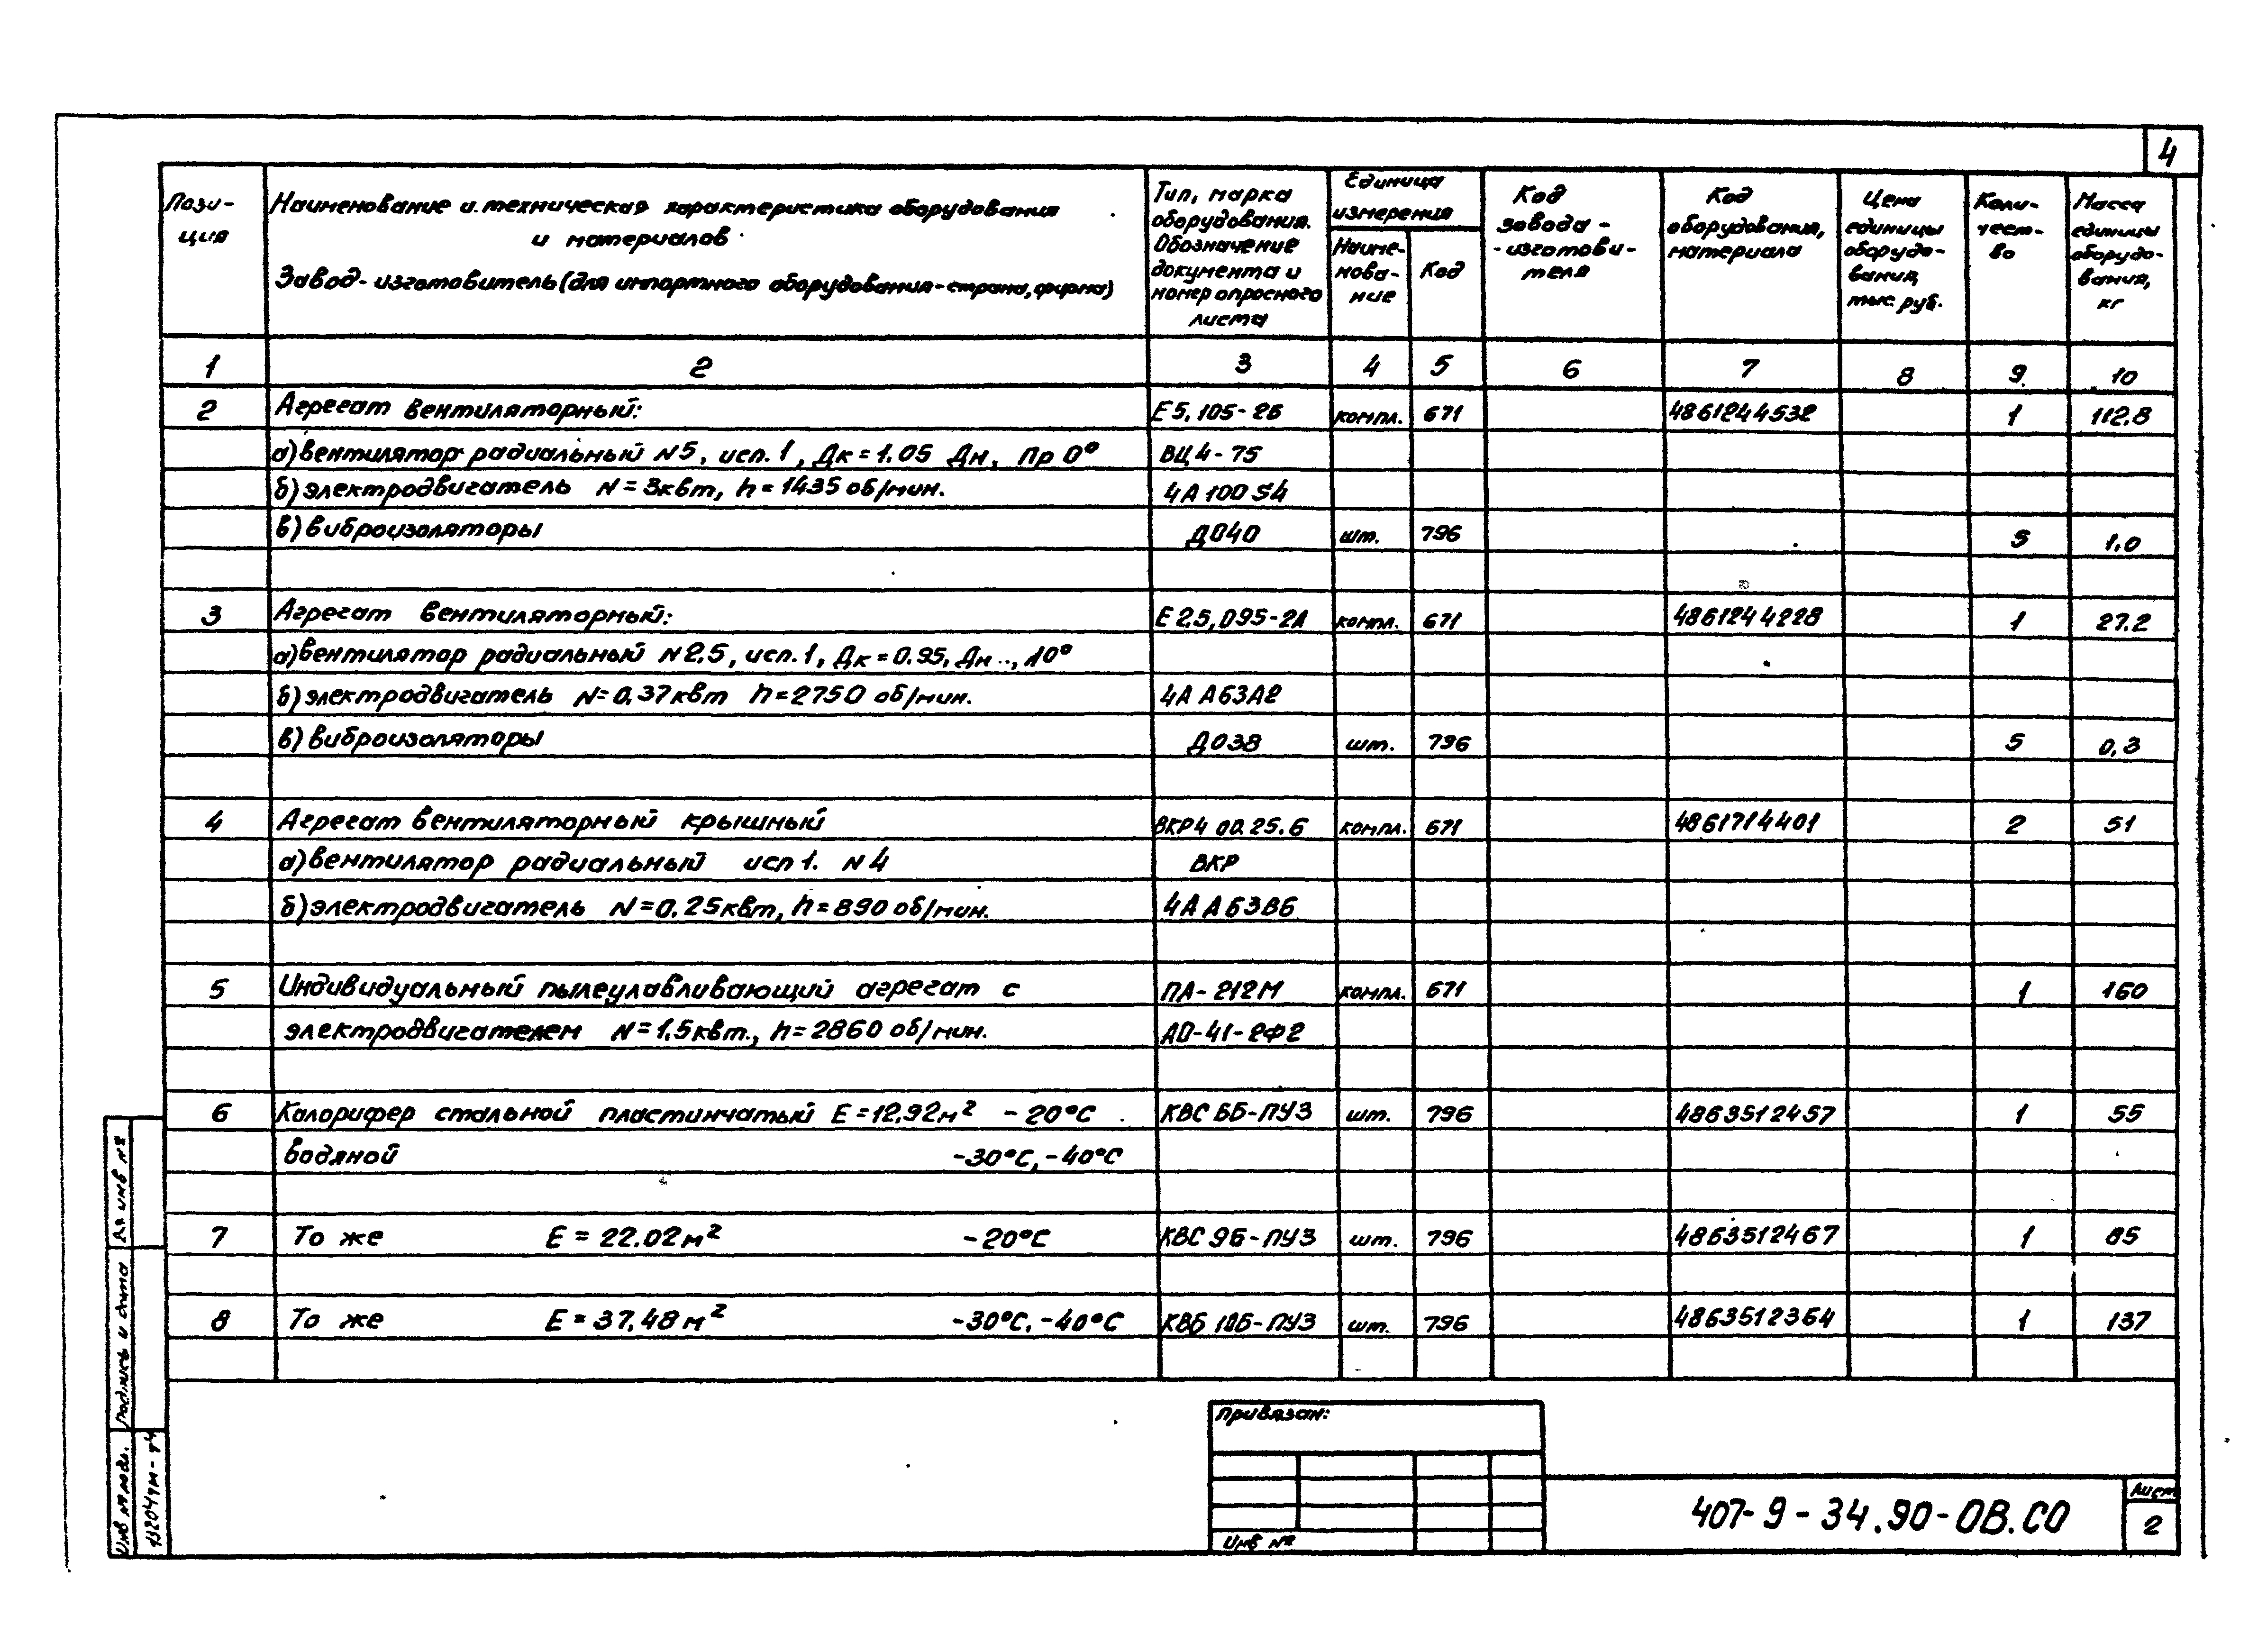 4
Пози-
ция
Наименование и техническая характеристика оборудования
и материалов
Завод-изготовитель (для импортного оборудования-страна, фирма)
Тип, марка
оборудования.
Обозначение
документа и
номер опросного
листа
Единица
измерения
Наиме-
нова-
ние
Код
Код
завода-
-изготови-
теля
Код
оборудования,
материала
Цена
единицы
оборудо-
вания,
тыс. руб.
Коли-
чест-
во
Масса
единицы
оборудо-
вания,
кг
1 2 3 4 5 6 7 8 9 10
2 Агрегат вентиляторный: Е5.105-2Б компл. 671 4861244532 1 112.8
а) вентилятор радиальный N5, исп. 1, Дк = 1.05 Дн, Пр 0° ВЦ4-75
б) электродвигатель N = 3квт, n = 1435 об/мин. 4А100S4
в) виброизоляторы ДО40 шт. 796 5 1.0
3 Агрегат вентиляторный: Е2.5,095-2А компл. 671 4861244228 1 27.2
а) вентилятор радиальный N2.5, исп. 1, Дк = 0.95, Дн .., Л0°
б) электродвигатель N = 0.37квт n = 2750 об/мин. 4АА63А2
в) виброизоляторы ДО38 шт. 796 5 0.3
4 Агрегат вентиляторный крышный ВКР4 00.25.6 компл. 671 4861714401 2 51
а) вентилятор радиальный исп 1. N4 ВКР
б) электродвигатель N = 0.25квт, n = 890 об/мин. 4АА63В6
5 Индивидуальный пылеулавливающий агрегат с ПА-212М компл. 671 1 160
электродвигателем N = 1.5квт., n = 2860 об/мин. АО-41-2Ф2
6 Калорифер стальной пластинчатый Е = 12.92м² -20°С КВС 6Б-ПУЗ шт. 796 4863512457 1 55
водяной -30°С, -40°С
7 То же Е = 22.02м² -20°С КВС 9Б-ПУЗ шт. 796 4863512467 1 85
8 То же Е = 37.48м² -30°С, -40°С КВБ 10Б-ПУЗ шт. 796 4863512364 1 137
Привязан:
Инв №
407-9-34.90-ОВ.СО
Лист
2
Инв № подл.
Подпись и дата
инв №